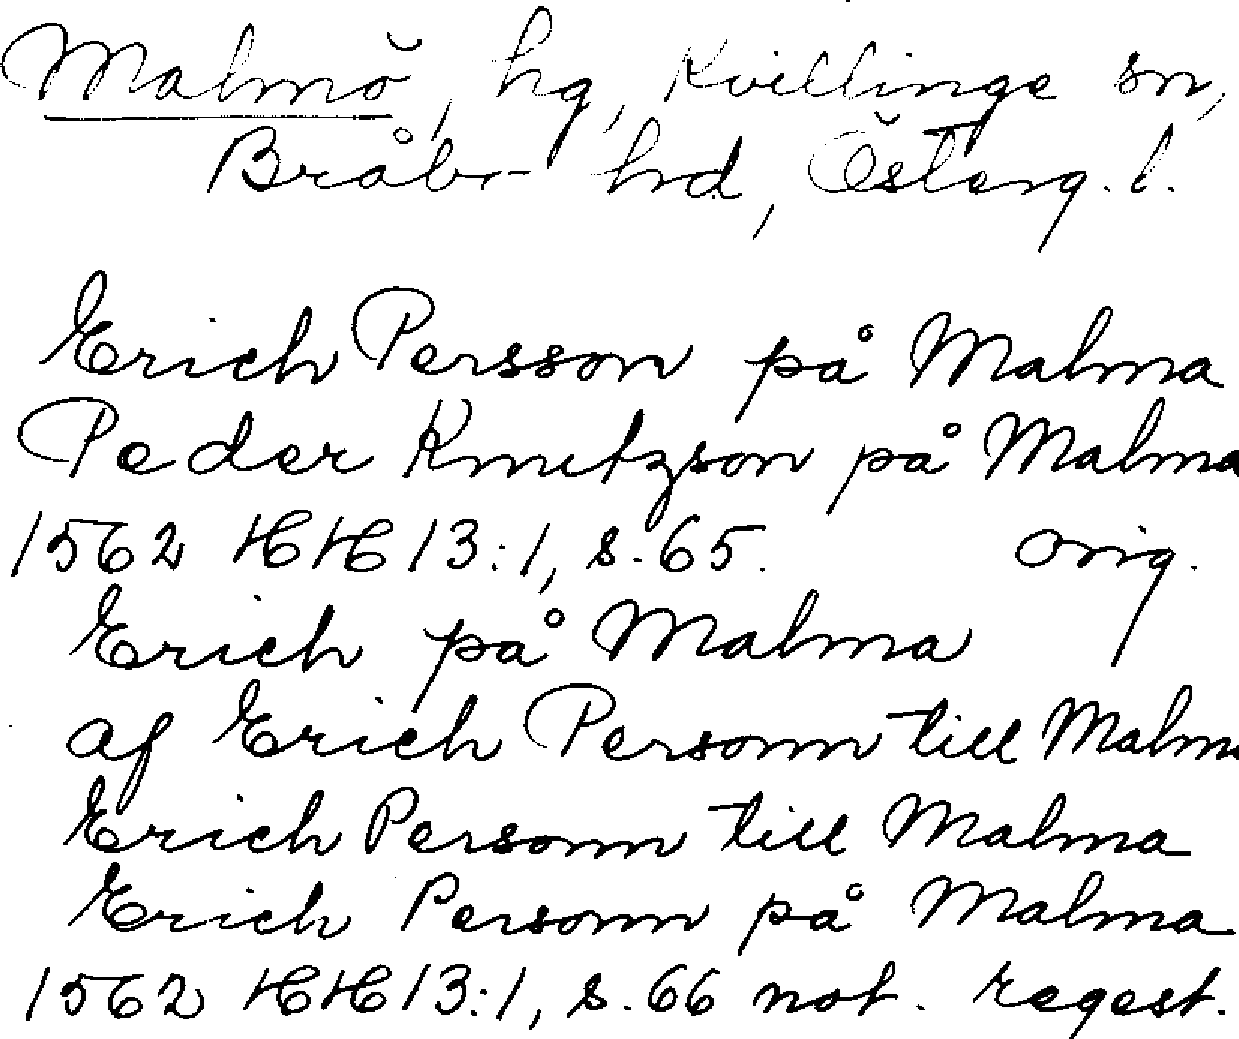 Malmö, hg, Kvillinge sn,
Bråbo hd, Österg. l.
Erich Persson på Malma
Peder Knutzson på Malma
1562 HH 13:1, s. 65. orig.
Erich på Malma
af Erich Personn till Malma
Erich Personn till Malma
Erich Personn på Malma
1562 HH 13:1, s. 66 not. regest.